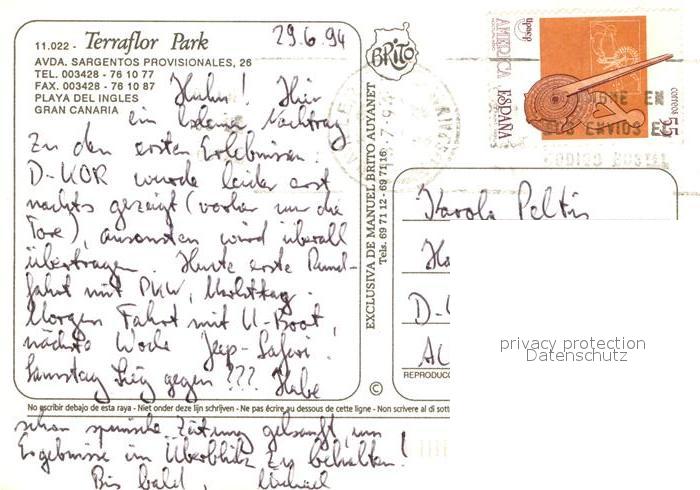 11.022 - Terraflor Park
AVDA. SARGENTOS PROVISIONALES, 26
TEL. 003428 - 76 10 77
FAX. 003428 - 76 10 87
PLAYA DEL INGLES
GRAN CANARIA
29.6.94
Huhu! Hier
ein kleiner Nachtrag
zu den ersten Erlebnissen:
D-KOR wurde leider erst
nachts gezeigt (vorher nur die
Tore), ansonsten wird überall
übertragen. Heute erste Rund-
fahrt mit PKW, Markttag.
Morgen Fahrt mit U-Boot,
nächste Woche Jeep-Safari.
Samstag Sieg gegen ??? Habe
No escribir debajo de esta raya - Niet onder deze lijn schrijven - Ne pas écrire au dessous de cette ligne - Non scrivere al di sott
schon spanische Zeitung gekauft, um
Ergebnisse im Überblick zu behalten!
Bis bald, Michael
BRITO
EXCLUSIVA DE MANUEL BRITO AUYANET
Tels. 69 71 12 - 69 71 16
©
UPAEP
AMERICA
ESPAÑA
CORREOS
55
NOMBRE EN
SUS ENVIOS EL
CODIGO POSTAL
Karola
Ho
D-
REPRODUCC
privacy protection
Datenschutz